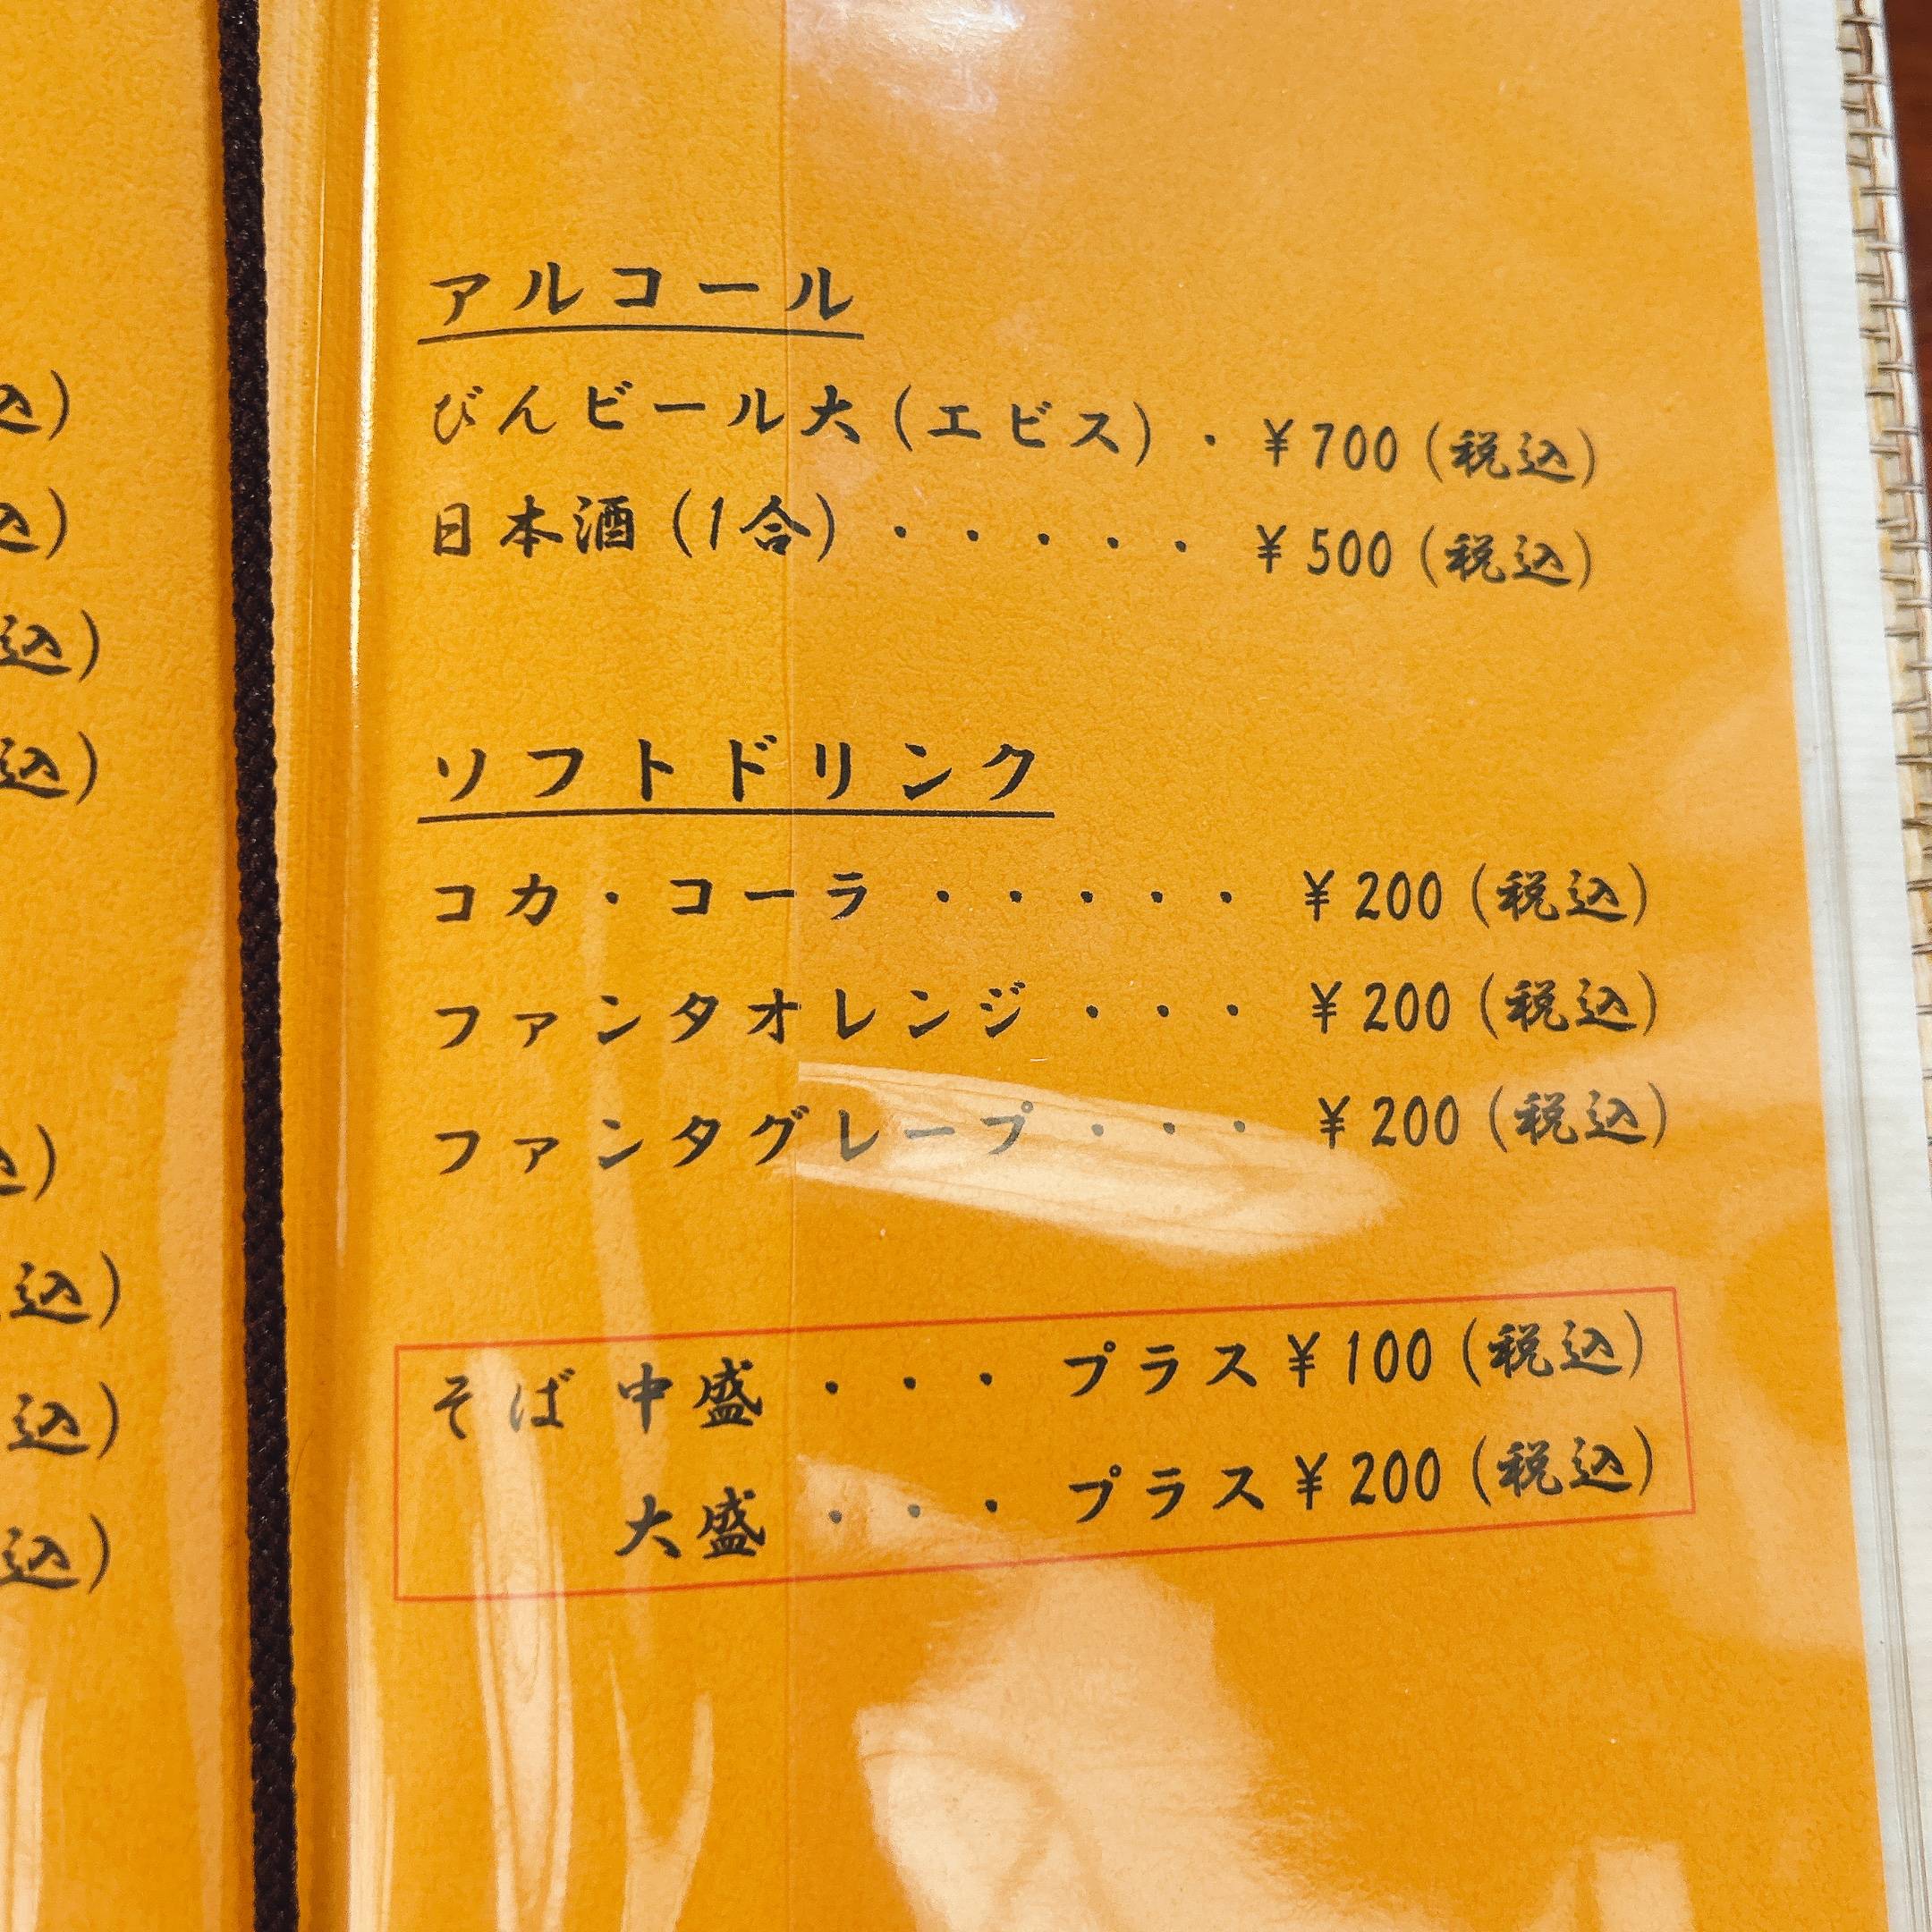 込)
込)
込)
込)
込)
込)
込)
込)
アルコール
びんビール大(エビス)・¥700(税込)
日本酒(1合)・・・・・¥500(税込)
ソフトドリンク
コカ・コーラ・・・・・¥200(税込)
ファンタオレンジ・・・¥200(税込)
ファンタグレープ・・・¥200(税込)
そば 中盛・・・プラス¥100(税込)
大盛・・・プラス¥200(税込)